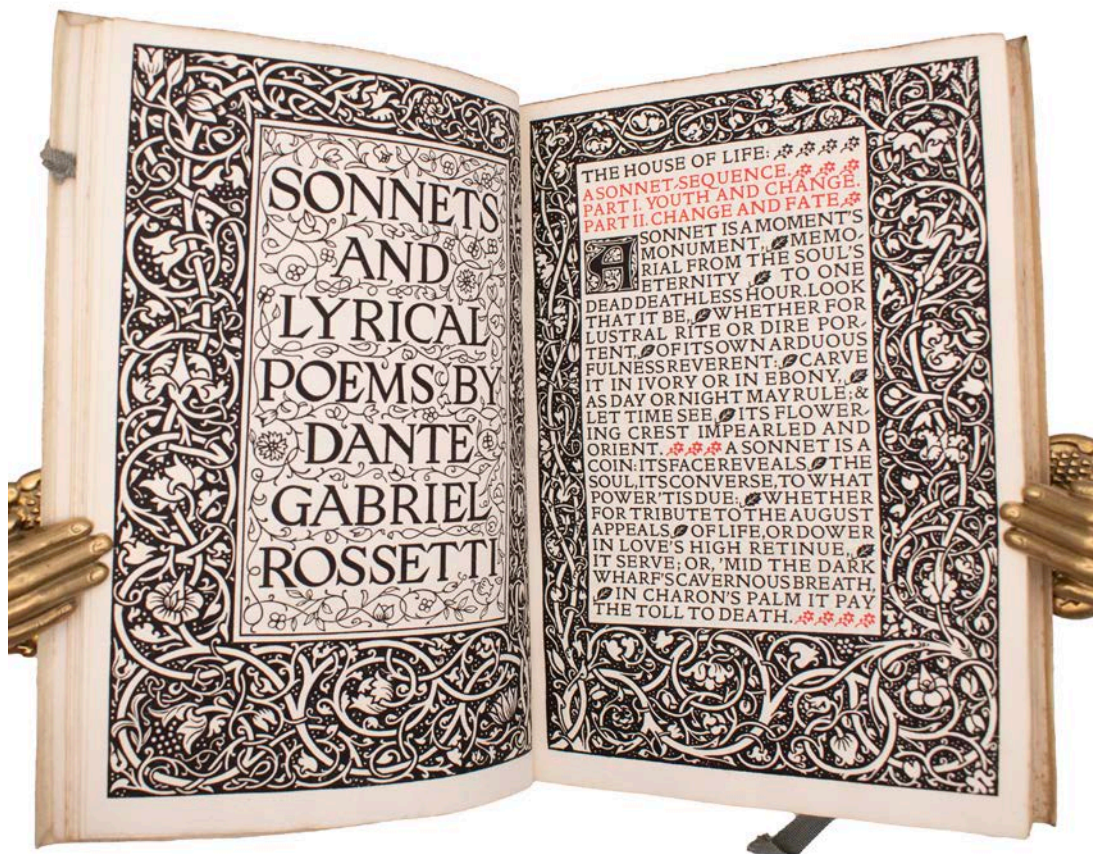 SONNETS
AND
LYRICAL
POEMS BY
DANTE
GABRIEL
ROSSETTI
THE HOUSE OF LIFE:
A SONNET-SEQUENCE.
PART I. YOUTH AND CHANGE.
PART II. CHANGE AND FATE
A SONNET IS A MOMENT'S
MONUMENT, MEMO-
RIAL FROM THE SOUL'S
ETERNITY TO ONE
DEAD DEATHLESS HOUR. LOOK
THAT IT BE, WHETHER FOR
LUSTRAL RITE OR DIRE POR-
TENT, OF ITS OWN ARDUOUS
FULNESS REVERENT: CARVE
IT IN IVORY OR IN EBONY,
AS DAY OR NIGHT MAY RULE; &
LET TIME SEE ITS FLOWER-
ING CREST IMPEARLED AND
ORIENT. A SONNET IS A
COIN: ITS FACE REVEALS THE
SOUL, ITS CONVERSE, TO WHAT
POWER 'TIS DUE: WHETHER
FOR TRIBUTE TO THE AUGUST
APPEALS OF LIFE, OR DOWER
IN LOVE'S HIGH RETINUE,
IT SERVE; OR, 'MID THE DARK
WHARF'S CAVERNOUS BREATH,
IN CHARON'S PALM IT PAY
THE TOLL TO DEATH.